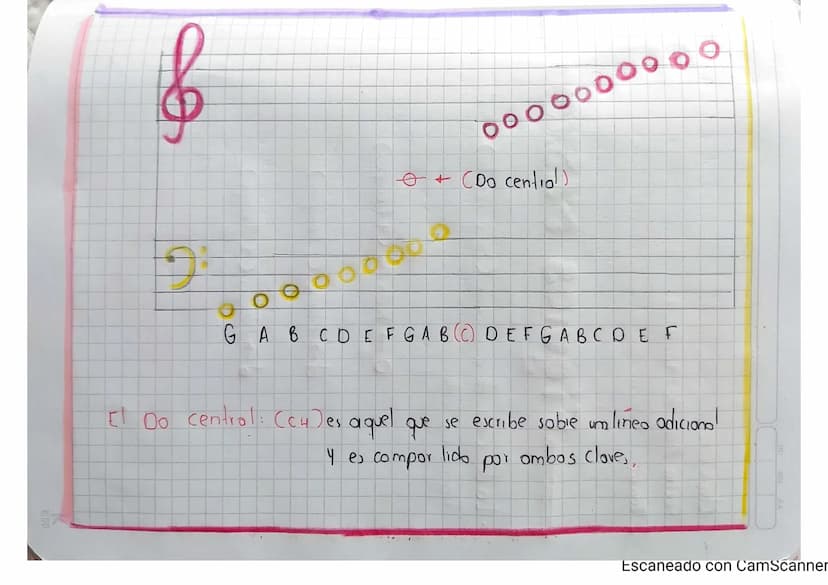 ← (Do central)
G A B C D E F G A B (C) D E F G A B C D E F
El Do central: (C4) es aquel que se escribe sobre un lineo adicional
Y es compor tido por ambos claves.
Escaneado con CamScanner